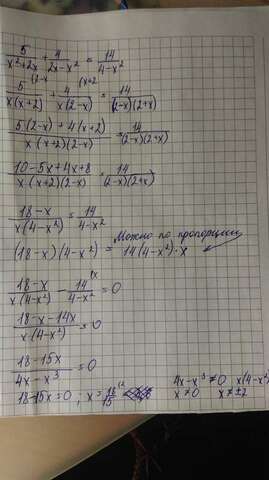 5/(x²+2x) + 4/(2x-x²) = 14/(4-x²)
(2-x (x+2
5/(x(x+2)) + 4/(x(2-x)) = 14/((2-x)(2+x))
(5(2-x) + 4(x+2))/(x(x+2)(2-x)) = 14/((2-x)(2+x))
(10-5x+4x+8)/(x(x+2)(2-x)) = 14/((2-x)(2+x))
(18-x)/(x(4-x²)) = 14/(4-x²)
Можно по пропорции
(18-x)(4-x²) = 14(4-x²)·x
(18-x)/(x(4-x²)) - 14/(4-x²) (x = 0
(18-x-14x)/(x(4-x²)) = 0
(18-15x)/(4x-x³) = 0
4x-x³≠0 x(4-x²)
18-15x=0; x=18/15 x≠0 x≠±2